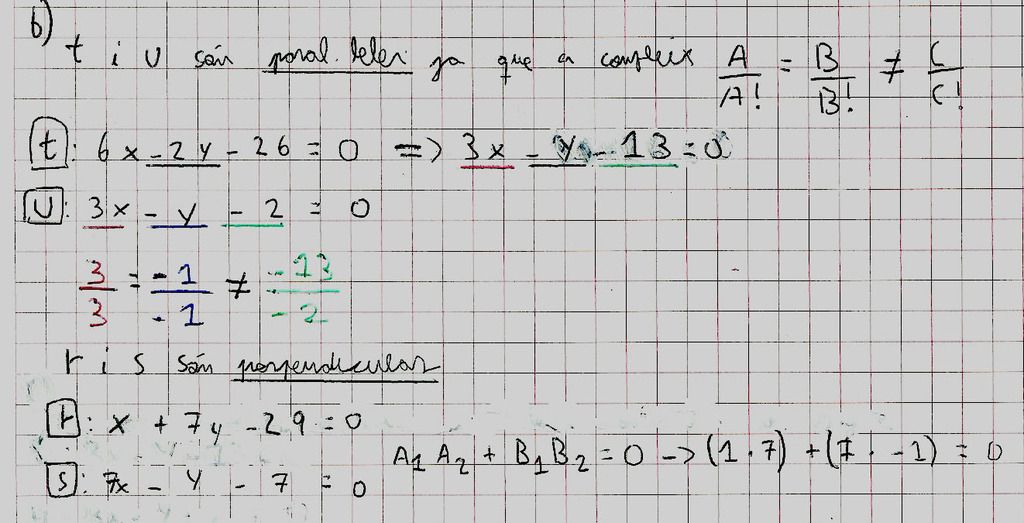 b)
t i U són paral·leles ja que es compleix A/A' = B/B' ≠ C/C'
t: 6x - 2y - 26 = 0 => 3x - y - 13 = 0
U: 3x - y - 2 = 0
3/3 = -1/-1 ≠ -13/-2
r i s són perpendicular
r: x + 7y - 29 = 0
A1 A2 + B1 B2 = 0 -> (1·7) + (7·-1) = 0
s: 7x - y - 7 = 0